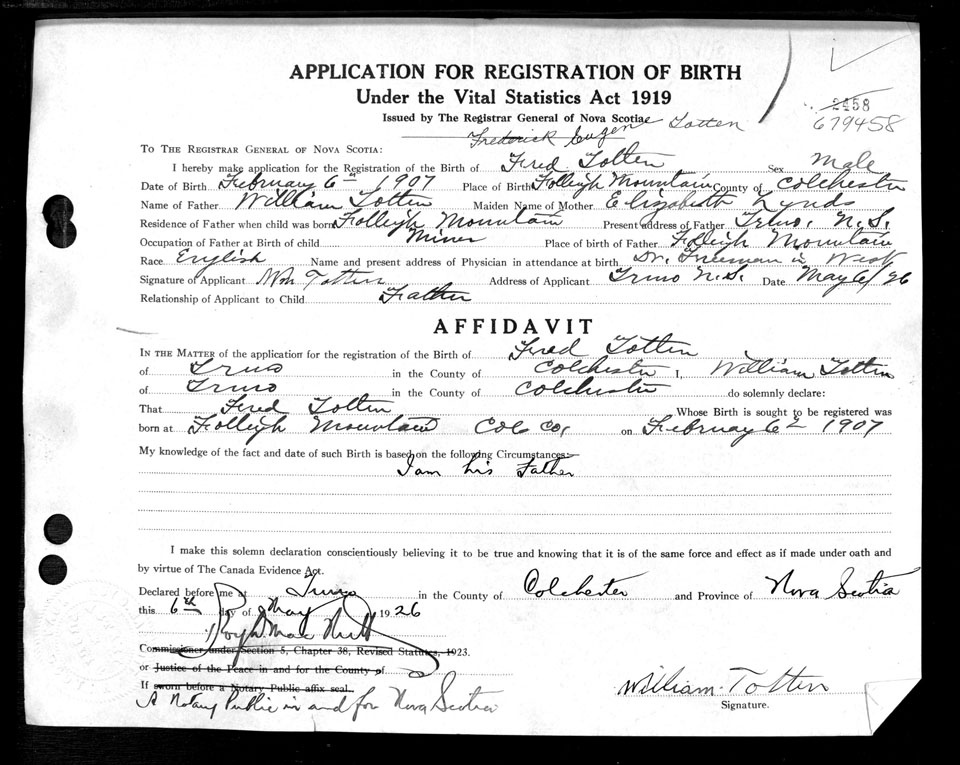 APPLICATION FOR REGISTRATION OF BIRTH
Under the Vital Statistics Act 1919
Issued by The Registrar General of Nova Scotia
2458
679458
Frederick Eugene Totten
TO THE REGISTRAR GENERAL OF NOVA SCOTIA:
I hereby make application for the Registration of the Birth of Fred Totten Sex Male
Date of Birth February 6th 1907 Place of Birth Folleigh Mountain County of Colchester
Name of Father William Totten Maiden Name of Mother Elizabeth Lynds
Residence of Father when child was born Folleigh Mountain Present address of Father Truro, N.S.
Occupation of Father at Birth of child Miner Place of birth of Father Folleigh Mountain
Race English Name and present address of Physician in attendance at birth Dr. Freeman in West
Signature of Applicant Wm Totten Address of Applicant Truro N.S. Date May 6/26
Relationship of Applicant to Child Father
AFFIDAVIT
IN THE MATTER of the application for the registration of the Birth of Fred Totten
of Truro in the County of Colchester I, William Totten
of Truro in the County of Colchester do solemnly declare:
That Fred Totten Whose Birth is sought to be registered was
born at Folleigh Mountain Col Co, on February 6th 1907
My knowledge of the fact and date of such Birth is based on the following Circumstances:—
I am his Father
I make this solemn declaration conscientiously believing it to be true and knowing that it is of the same force and effect as if made under oath and
by virtue of The Canada Evidence Act.
Declared before me at Truro in the County of Colchester and Province of Nova Scotia
this 6th day of May 1926
Mac Nutt
Commissioner under Section 5, Chapter 38, Revised Statutes, 1923.
or Justice of the Peace in and for the County of
If sworn before a Notary Public affix seal.
A Notary Public in and for Nova Scotia
William Totten
Signature.